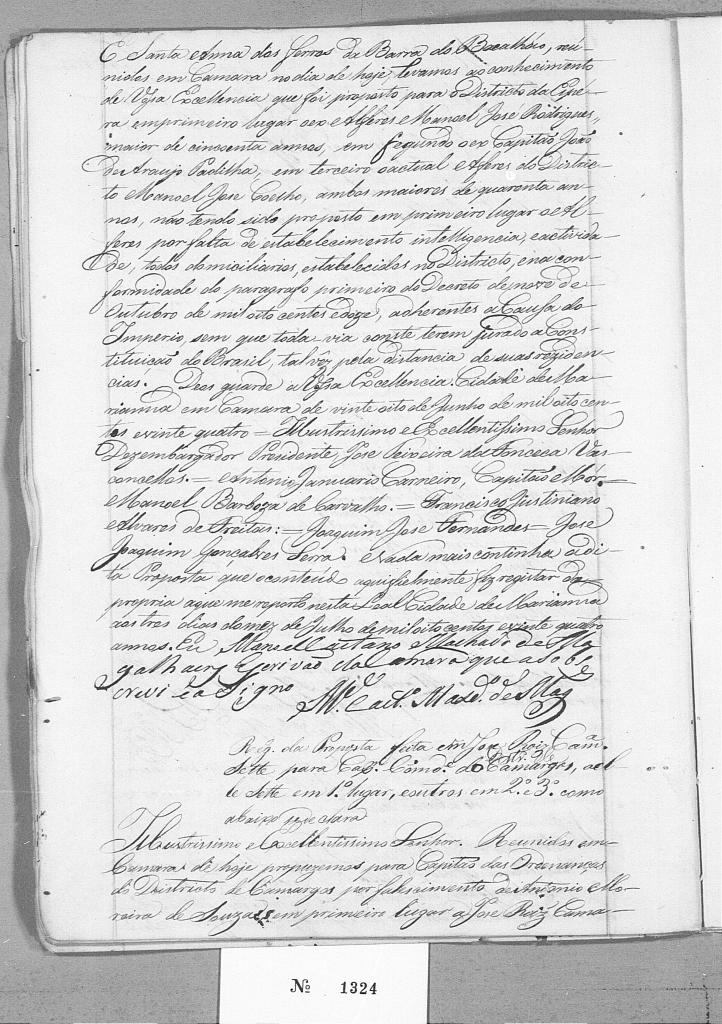 E Santa Anna dos ferros da Barra do Bacalháo, reú-
nidos em Camara no dia de hoje, levamos ao conhecimento
de Vossa Excellencia que foi proposto para o Districto da Espe-
ra em primeiro lugar o ex Alferes Manoel Jose Rodrigues,
maior de cincoenta annos, em segundo o ex Capitão João
de Araujo Padilha, em terceiro o actual Alferes do Distric-
to Manoel Jose Coelho, ambos maiores de quarenta an-
nos, não tendo sido proposto em primeiro lugar o Al-
feres por falta de estabelecimento intelligencia, e activida-
de, todos domiciliarios, estabelecidos no Districto, e na con-
formidade do paragrafo primeiro do Decreto de nove de
Outubro de mil oito centos e doze, adherentes a Causa do
Imperio, sem que toda-via conste terem jurado a Cons-
tituicão do Brasil, talvêz pela distancia de suas rezideen-
cias. Deos guarde a Vossa Excellencia. Cidade de Ma-
rianna em Camara de vinte oito de Junho de mil oito cen-
tos e vinte quatro = Illustrissimo e Excellentissimo Senhor
Dezembargador Prezidente, Jose Teixeira da Fonceca Vas-
concellos. = Antonio Januario Carneiro, Capitão Mór. =
Manoel Barboza de Carvalho. = Francisco Justiniano
Alvares de Freitas: = Joaquim Jose Fernandes = Jose
Joaquim Gonçalves Serra. E nada mais continha a di-
ta Proposta que o conteúdo aqui fielmente fiz registar da
propria a que me reporto nesta Leal Cidade de Marianna
aos tres dias do mez de Julho de mil oito centos e vinte quatro
annos. Eu Manoel Caetano Machado de Ma
galhaens Escrivão da Camara que a sob
crevi e a Signo Ml. Caet. Maxd. de Mag
Reg. da Proposta feita em Jose Roiz Cam.
Sette para Cap. Comd. do Distri. de Camargos, a el
le Sette em 1º lugar, e outros em 2º e 3º como
abaixo se declara
Illustrissimo e Excellentissimo Senhor. Reunidos em
Camara de hoje propuzemos para Capitão das Ordenanças
do Districto de Camargos por falescimento de Antonio Mo-
reira de Souza em primeiro lugar a Jose Roiz Cama-
Nº 1324